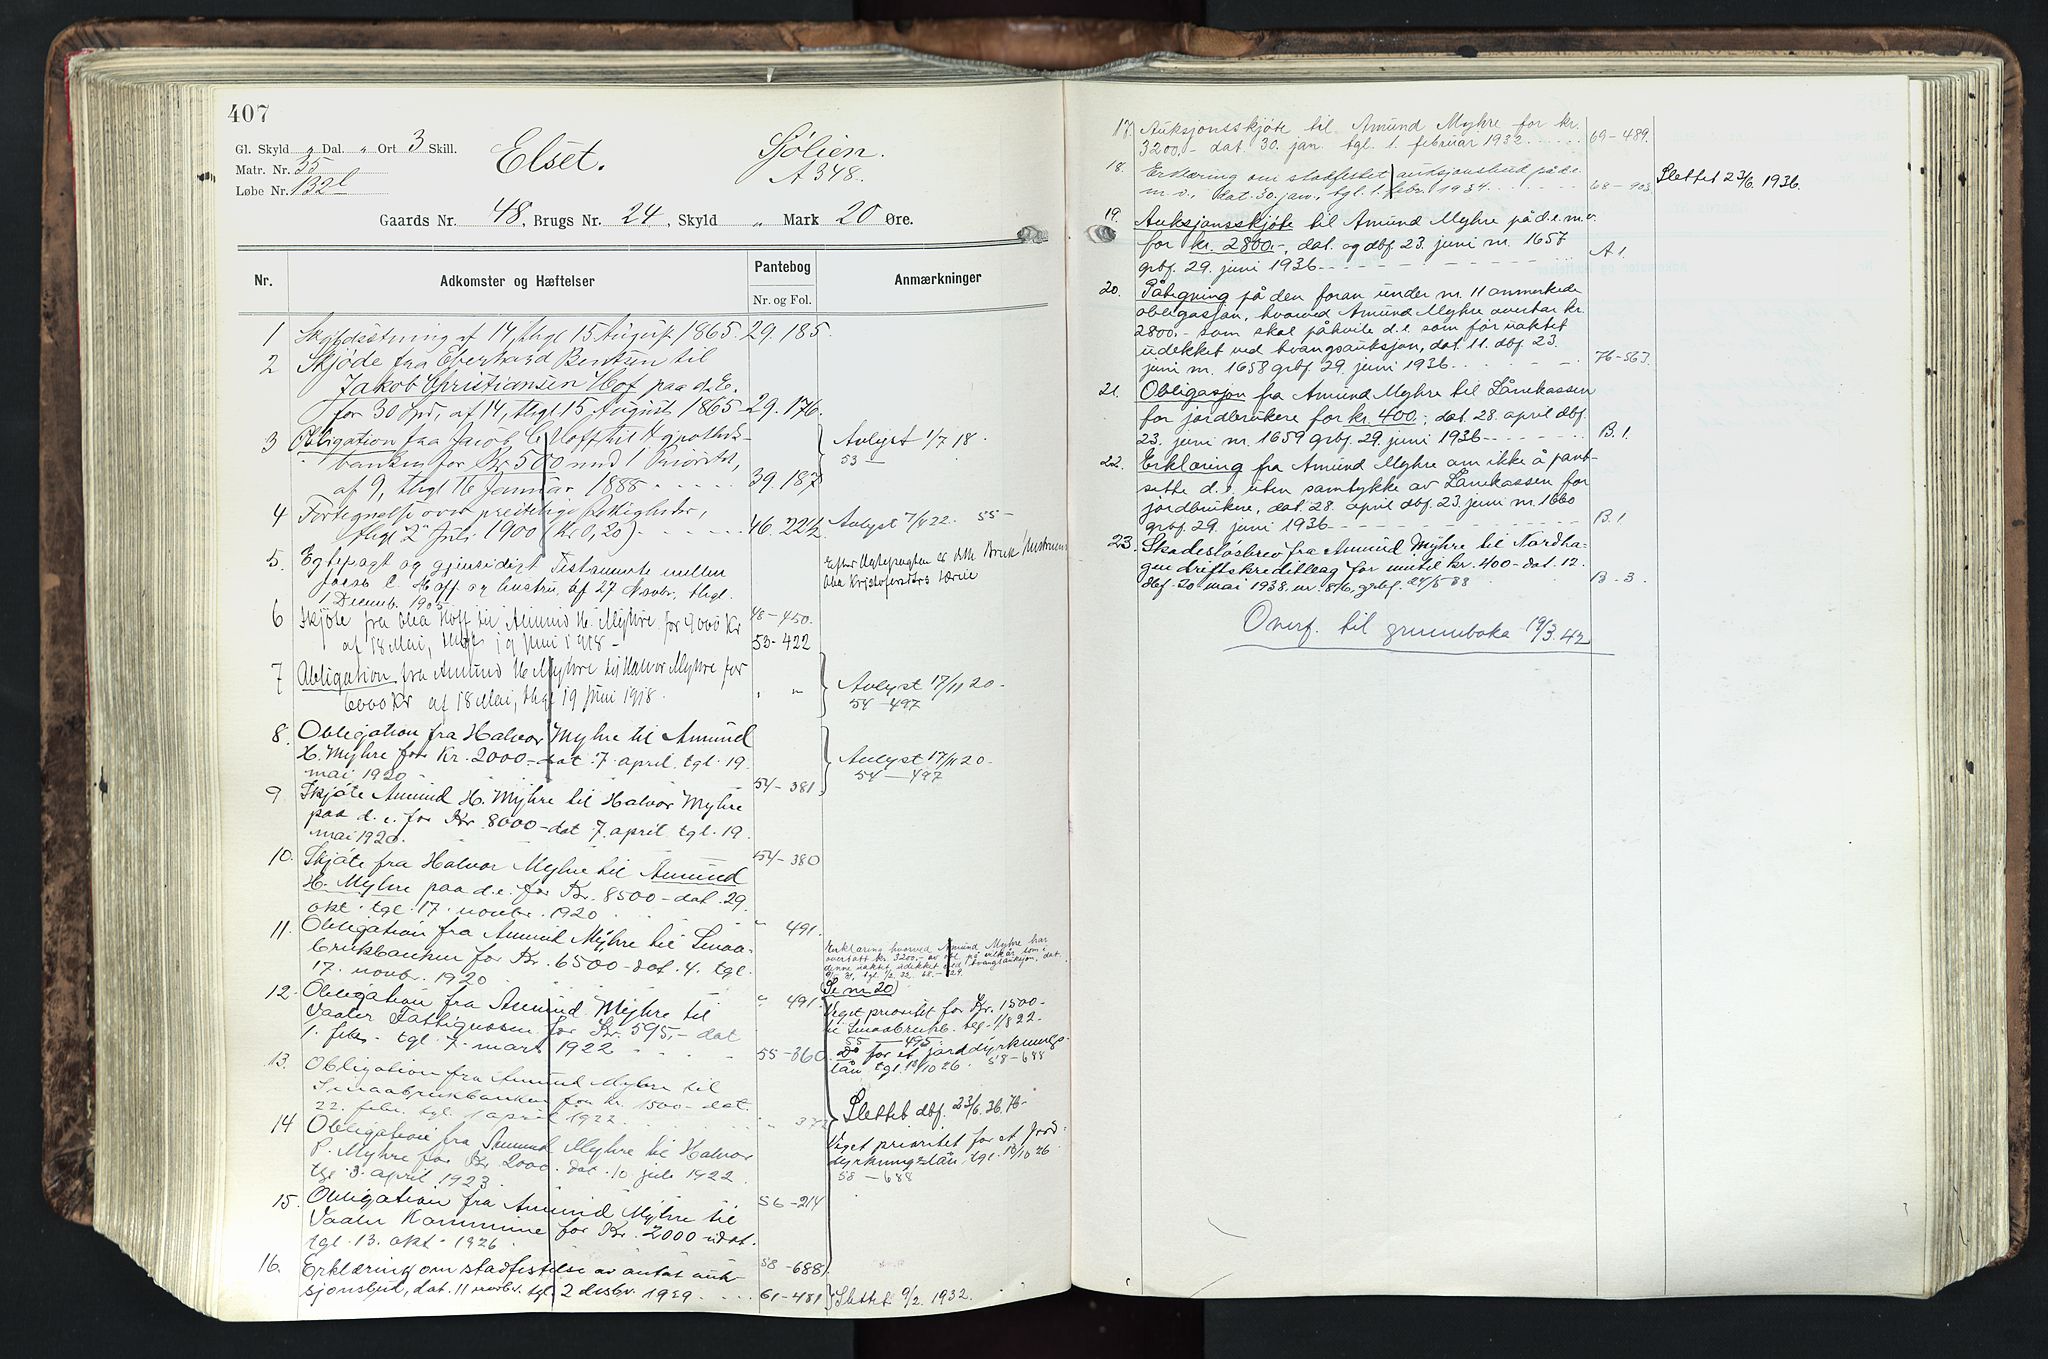 407
Gl. Skyld „ Dal. „ Ort 3 Skill.
Matr. Nr. 35
Løbe Nr. 132l
Elset.
Sølien.
A 348.
Gaards Nr. 48, Brugs Nr. 24, Skyld „ Mark 20 Øre.
Nr.
Adkomster og Hæftelser
Pantebog
Nr. og Fol.
Anmærkninger
1 Skyldsætning af 14, thgl 15 August 1865. 29.185.
2 Skjøde fra Everhard Berntsen til
Jakob Christiansen Hof paa d. E.
for 30 Spd, af 14, thgl 15 August 1865 29.176.
3 Obligation fra Jacob C Hoff til Hypothek-
banken for Kr 500 med 1 Prioritet,
af 9, thgl 16 Januar 1888 39.187
Avlyst 1/7 18.
53 —
4 Fortegnelse over Rettigheder,
thgl 2 Juli 1900 (Kr 0,20) 46.222
Avlyst 7/4 22. 55 —
5. Egtepagt og gjensidigt Testamente mellem
Jacob C. Hoff og hustru, af 27 Novbr, thgl.
1 Decemb. 1905 48-450.
Efter Egtepagten er dette Bruk Hustruens
6 Skjøte fra Olea Hoff til Amund H. Myhre for 9000 Kr
af 18 Mai, thgl 19 Juni 1918 - 53-422
7 Obligation fra Amund H Myhre til Halvor Myhre for
6000 Kr af 18 Mai, thgl 19 Juni 1918. „ „
Avlyst 17/11 20.
54 — 497
8. Obligation fra Halvor Myhre til Amund
H. Myhre for Kr. 2000 - dat. 7. april, tgl. 19.
mai 1920 54-381
Avlyst 17/11 20.
54 — 497
9 Skjøte Amund H. Myhre til Halvor Myhre
paa d. e. for Kr. 8000 - dat 7. april tgl. 19.
mai 1920. 54-380
10. Skjøte fra Halvor Myhre til Amund
H. Myhre paa d. e. for Kr. 8500 - dat. 29.
okt. tgl. 17. novbr. 1920 „ 491.
11. Obligation fra Amund Myhre til Smaa-
brukbanken for Kr. 6500 - dat. 4. tgl.
17. novbr. 1920 „ 491.
Erklæring hvorved Amund Myhre har
overtatt kr. 3200.- av obl. på vilkår som i
denne uaktet udekket ved tvangsauksjon, dat.
Se nr. 20)
12. Obligation fra Amund Myhre til
Vaaler Fattigvæsen for Kr. 595,- dat
1. febr. tgl. 7. mars 1922 55-360.
Veget prioritet for Kr. 1500-
til Smaabrukb. tgl. 1/4 22.
55 — 495.
Do for et jorddyrknings-
lån tgl. 13/10 26. 58-688
13. Obligation fra Amund Myhre til
Smaabrukbanken for Kr. 1500 - dat.
22. febr. tgl. 1 april 1922 „ 372
Slettet dbf. 23/6. 36. 76-
14 Obligation fra Amund Myhre til Halvor
P. Myhre for Kr 2000. dat. 10. juli 1922.
tgl. 3. april 1923 56-214
Veget prioritet for et Jord-
dyrkningslån, tgl. 13/10 26
58 — 688
15. Obligation fra Amund Myhre til
Vaaler Kommune for Kr. 2000 udat.
tgl. 13. okt. 1926. 58-688
16. Erklæring om stadfestelse av antat auk-
sjonsbud, dat. 11 novbr. tgl. 2 desbr. 1929. 61-481
Slettet 9/2. 1932.
17. Auksjonsskjøte til Amund Myhre for kr.
3200.- dat. 30. jan. tgl. 1. februar 1932. 69-489.
18. Erklæring om stadfestet auksjonsbud på d. e.
m. v., dat. 30. jan., tgl. 1. febr. 1934. 68-903
Slettet 23/6. 1936.
19. Auksjonsskjøte til Amund Myhre på d. e. m. v.
for kr. 2800.-, dat. og dbf. 23. juni nr. 1657
grbf. 29. juni 1936 A 1.
20. Påtegning på den foran under nr. 11 anmerkede
obligasjon, hvorved Amund Myhre overtar kr.
2800.- som skal påhvile d. e. som før uaktet
udekket ved tvangsauksjon, dat. 11. dbf. 23.
juni nr. 1658 grbf. 29. juni 1936 76-563.
21. Obligasjon fra Amund Myhre til Lånekassen
for jordbrukere for kr. 400.-, dat. 28. april dbf.
23. juni nr. 1659 grbf. 29. juni 1936 B. 1.
22. Erklæring fra Amund Myhre om ikke å pant-
sette d. e. uten samtykke av Lånekassen for
jordbrukere, dat. 28. april dbf. 23. juni nr. 1660
grbf. 29. juni 1936 B. 1
23. Skadesløsbrev fra Amund Myhre til Nordha-
gen driftskredittlag for inntil kr. 400 - dat. 12.
dbf. 20 mai 1938, nr. 816, grbf. 27/5-38 B - 3.
Overf. til grunnboka 19/3. 42